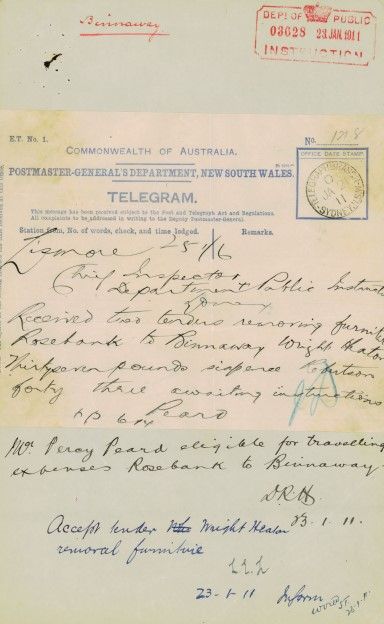 Binnaway.
DEPT OF PUBLIC
03628 23 JAN. 1911
INSTRUCTION
E.T. No. 1.
No. 128
COMMONWEALTH OF AUSTRALIA.
OFFICE DATE STAMP.
POSTMASTER-GENERAL'S DEPARTMENT, NEW SOUTH WALES.
TELEGRAM.
This message has been received subject to the Post and Telegraph Act and Regulations.
All complaints to be addressed in writing to the Deputy Postmaster-General.
Station from, No. of words, check, and time lodged. Remarks.
Lismore 25
Chief Inspector
Department Public Instruct
Sydney
Received two tenders removing furnitu
Rosebank to Binnaway Wright Heaton
Thirtyseven pounds sixpence
forty three awaiting instructions
Peard
Mr. Percy Peard eligible for travelling
expenses Rosebank to Binnaway.
D.R.H.
23.1.11.
Accept tender Wright Heaton
removal furniture
23-1-11 Inform